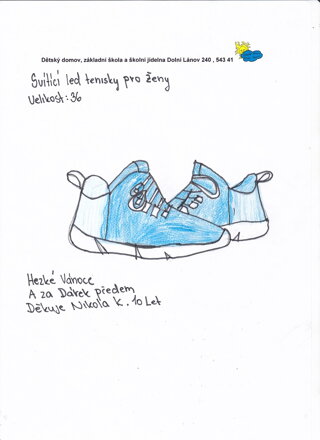 Dětský domov, základní škola a školní jídelna Dolní Lánov 240 , 543 41
Svítící led tenisky pro ženy
Velikost: 36
Hezké Vánoce
A za Dárek předem
Děkuje Nikola K. 10 Let